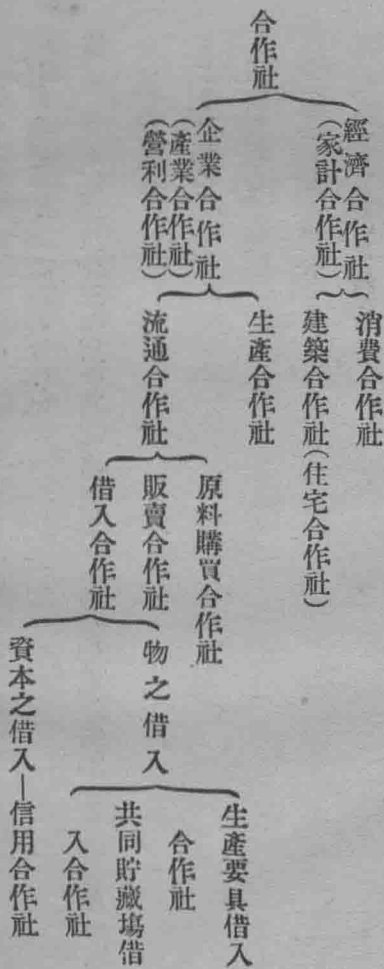 合作社
經濟合作社
(家計合作社)
消費合作社
建築合作社(住宅合作社)
企業合作社
(產業合作社)
(營利合作社)
生產合作社
流通合作社
原料購買合作社
販賣合作社
借入合作社
物之借入
生產要具借入
合作社
共同貯藏塲借
入合作社
資本之借入—信用合作社